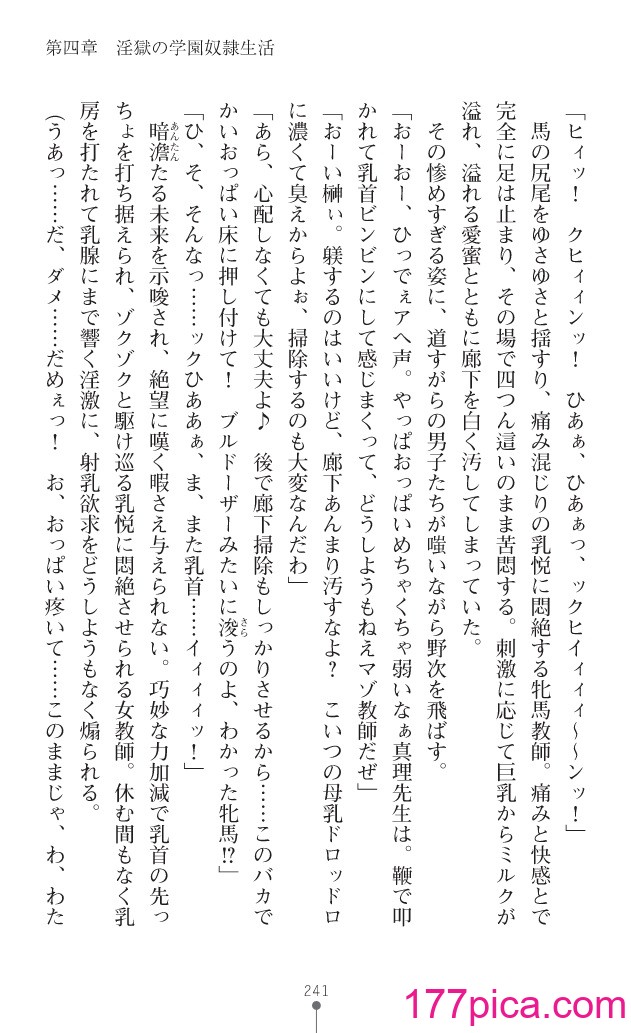 第四章　淫獄の学園奴隷生活
「ヒィッ！　クヒィィンッ！　ひあぁ、ひあぁっ、ックヒイィィィ～～ンッ！」
　馬の尻尾をゆさゆさと揺すり、痛み混じりの乳悦に悶絶する牝馬教師。痛みと快感とで
完全に足は止まり、その場で四つん這いのまま苦悶する。刺激に応じて巨乳からミルクが
溢れ、溢れる愛蜜とともに廊下を白く汚してしまっていた。
　その惨めすぎる姿に、道すがらの男子たちが嗤いながら野次を飛ばす。
「おーおー、ひっでぇアヘ声。やっぱおっぱいめちゃくちゃ弱いなぁ真理先生は。鞭で叩
かれて乳首ビンビンにして感じまくって、どうしようもねえマゾ教師だぜ」
「おーい榊ぃ。躾するのはいいけど、廊下あんまり汚すなよ？　こいつの母乳ドロッドロ
に濃くて臭えからよぉ、掃除するのも大変なんだわ」
「あら、心配しなくても大丈夫よ♪　後で廊下掃除もしっかりさせるから……このバカで
かいおっぱい床に押し付けて！　ブルドーザーみたいに浚うのよ、わかった牝馬!?」
「ひ、そ、そんなっ……ックひああぁ、ま、また乳首……イィィィッ！」
　暗澹たる未来を示唆され、絶望に嘆く暇さえ与えられない。巧妙な力加減で乳首の先っ
ちょを打ち据えられ、ゾクゾクと駆け巡る乳悦に悶絶させられる女教師。休む間もなく乳
房を打たれて乳腺にまで響く淫激に、射乳欲求をどうしようもなく煽られる。
（うあっ……だ、ダメ……だめぇっ！　お、おっぱい疼いて……このままじゃ、わ、わた
241
177pica.com